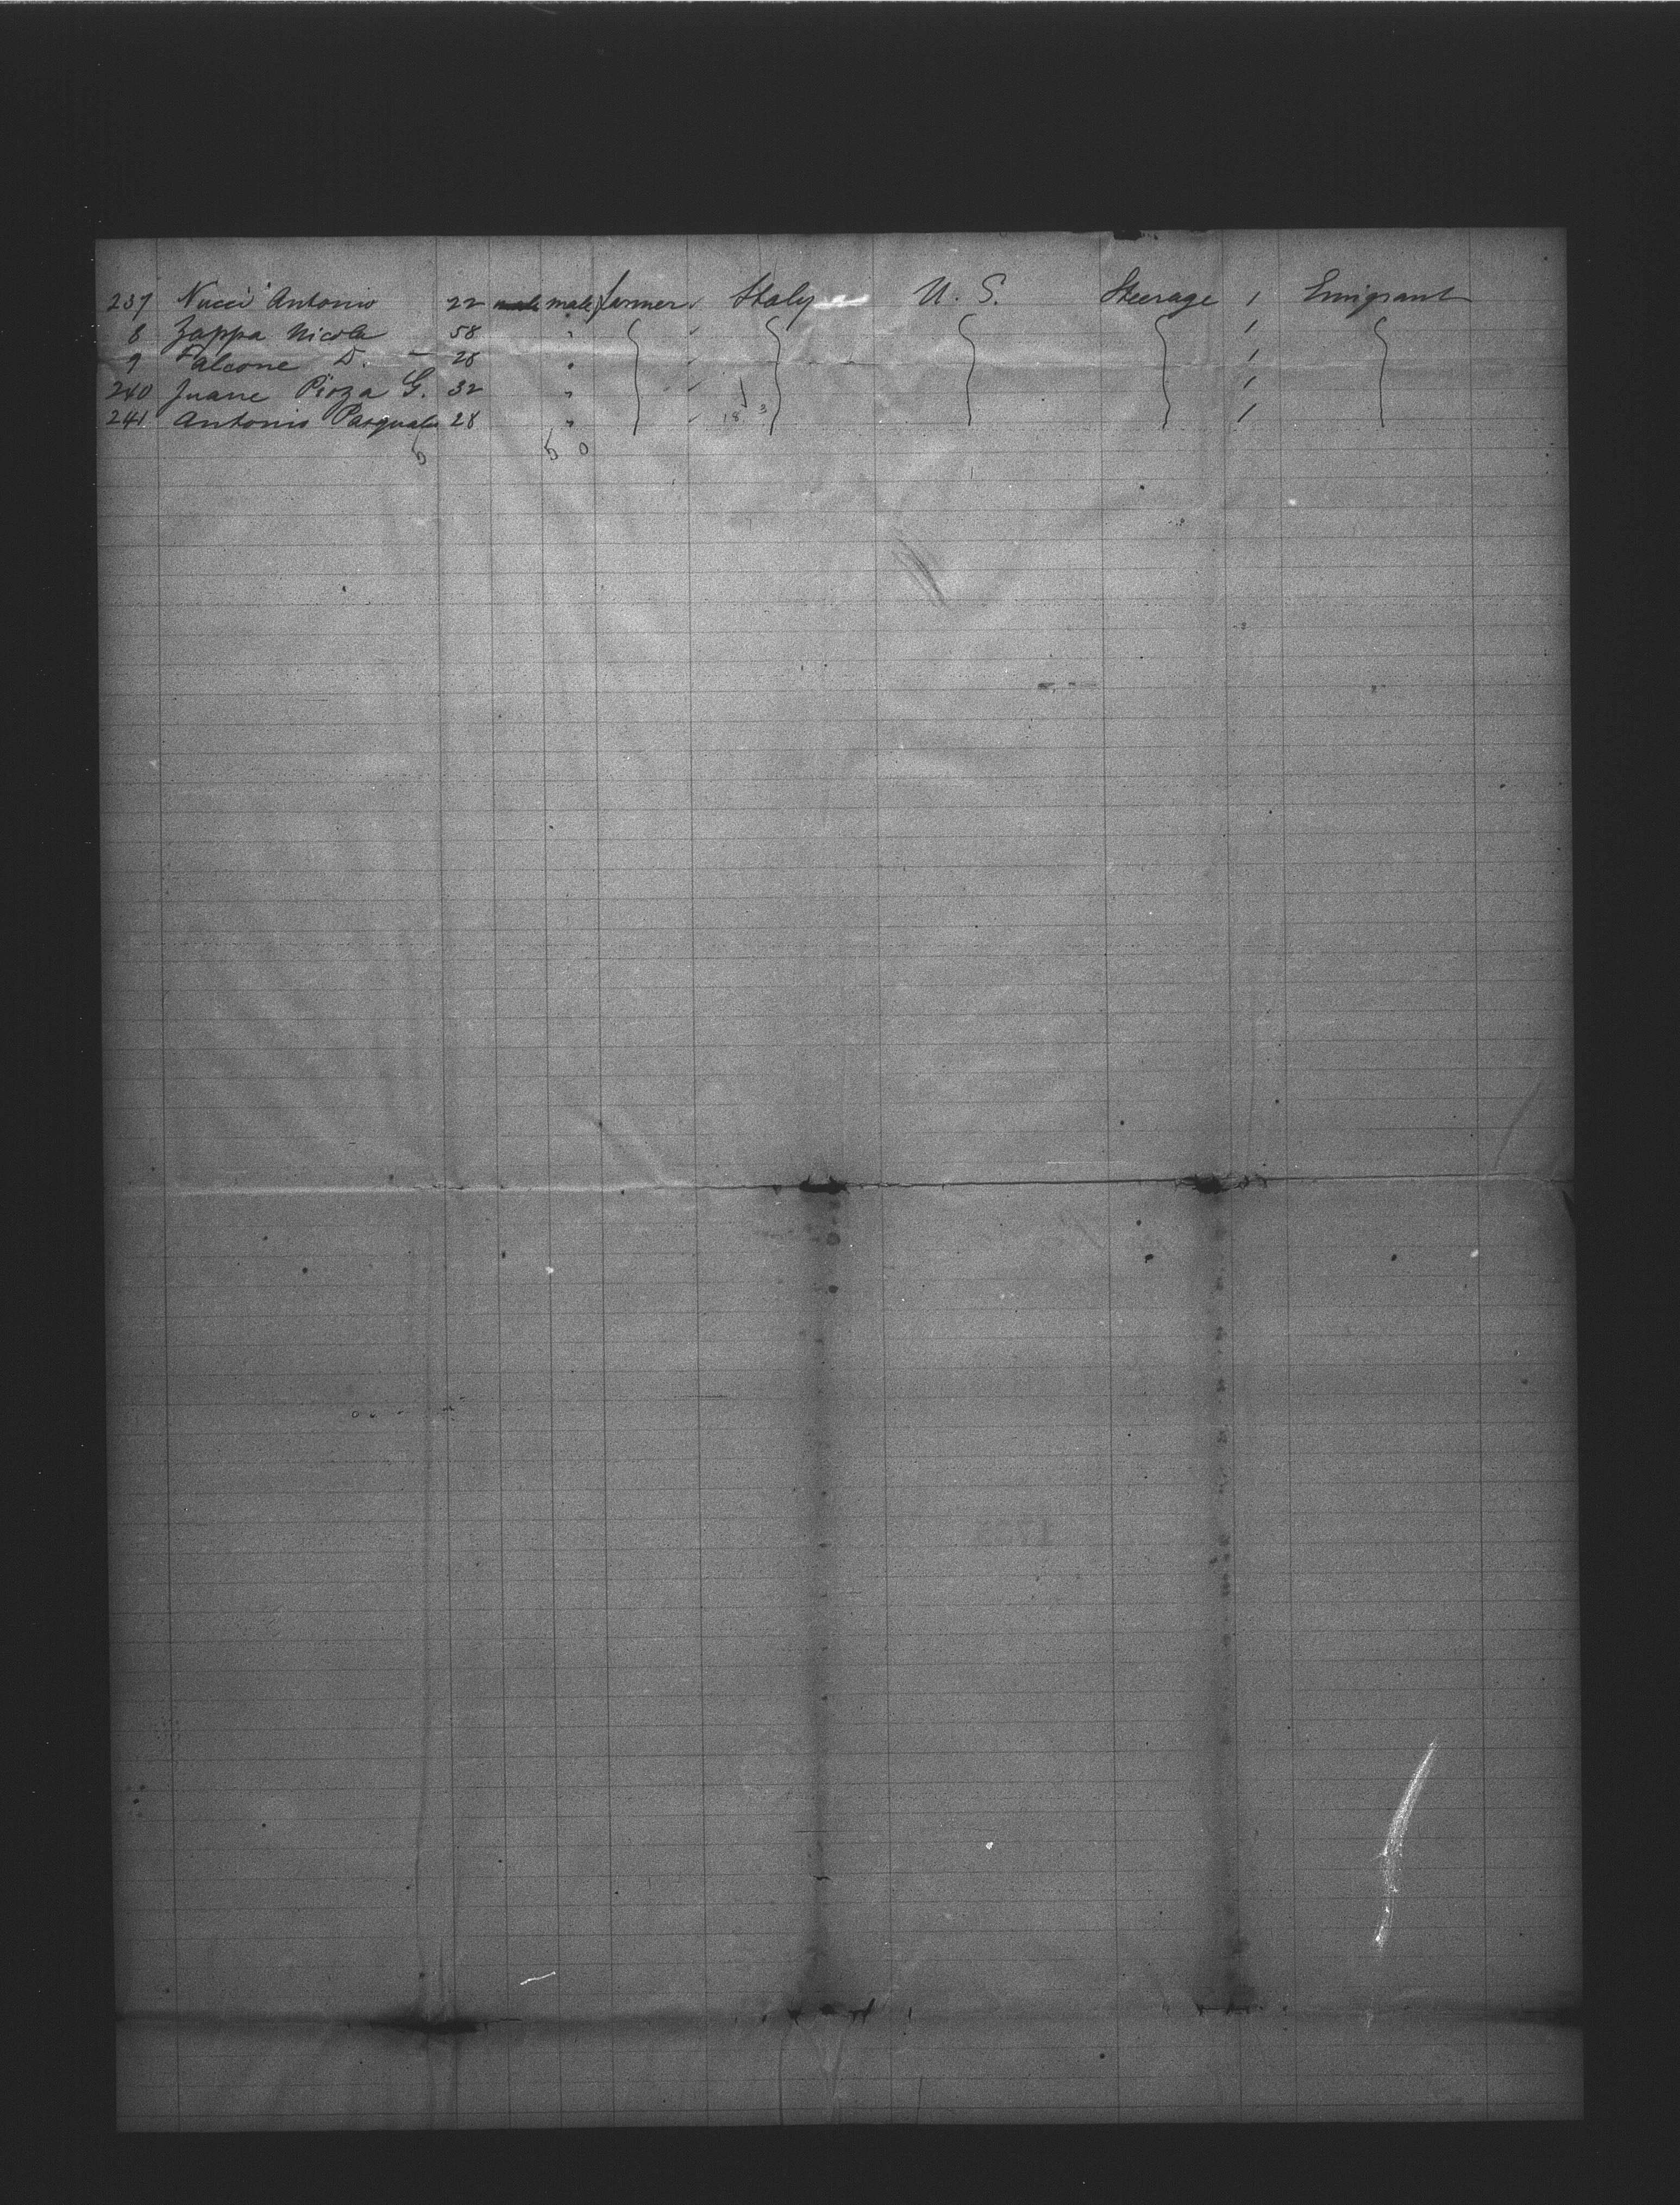 237 Nucci Antonio 22 male farmer Italy U. S. Steerage 1 Emigrant
8 Zappa Nicola 58 " 1
9 Falcone D. 28 " 1
240 Juane G. 32 " 1
241 Antonio Pasquale 28 " 1
5 5 0